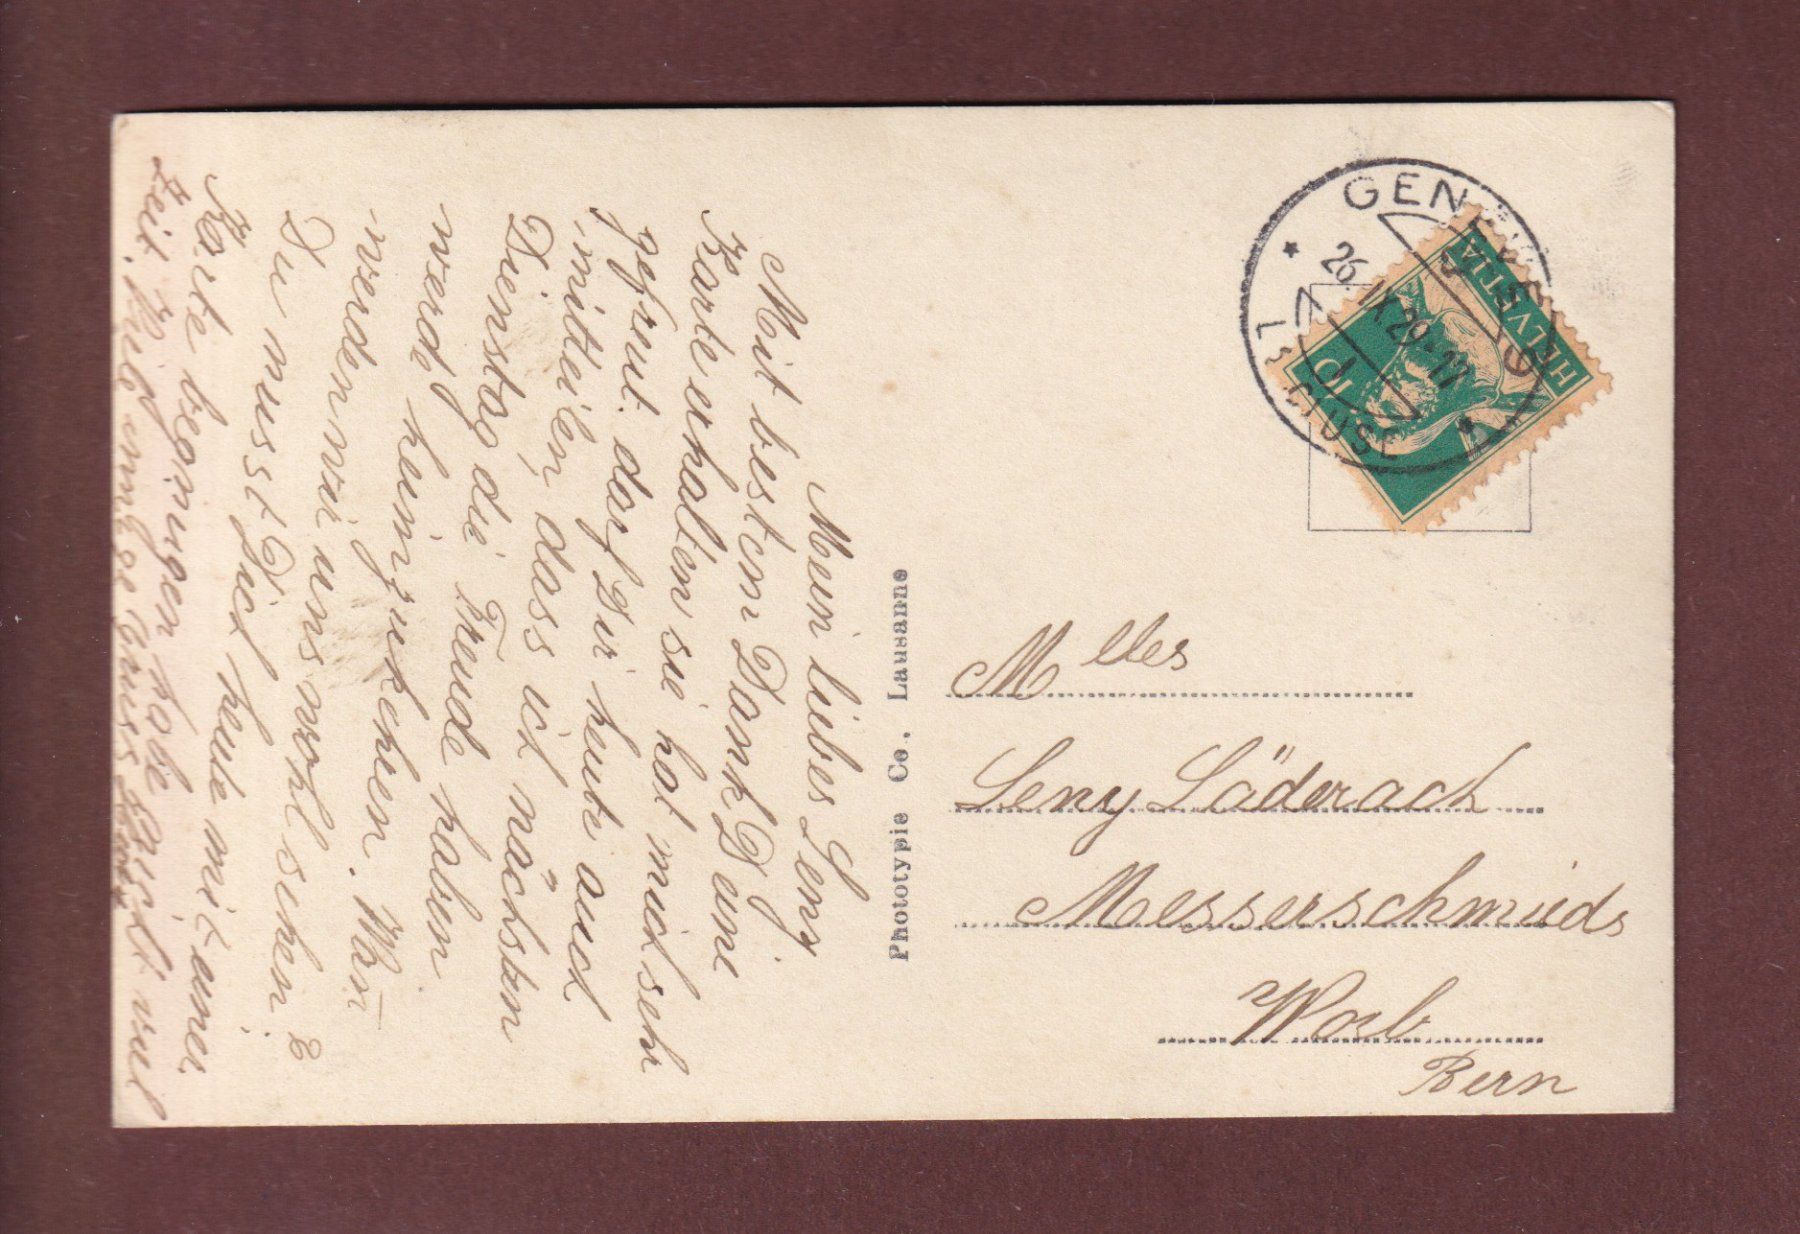 Mein liebes Leny
Mit bestem Dank Deine
Karte erhalten sie hat mich sehr
gefreut. darf Dir heute auch
mitteilen, dass ich nächsten
Dienstag die Freude haben
werde heimzukehren. Wan̄
werden wir uns wohl sehen?
Du musst Dich heute mit einer
Karte begnügen habe nicht viel
Zeit. Küsse
Phototypie Co., Lausanne
GENÈVE 9
26.IX.29-17
L'ECLUSE
HELVETIA
10
Mlles
Leny Läderach
Messerschmieds
Worb
Bern